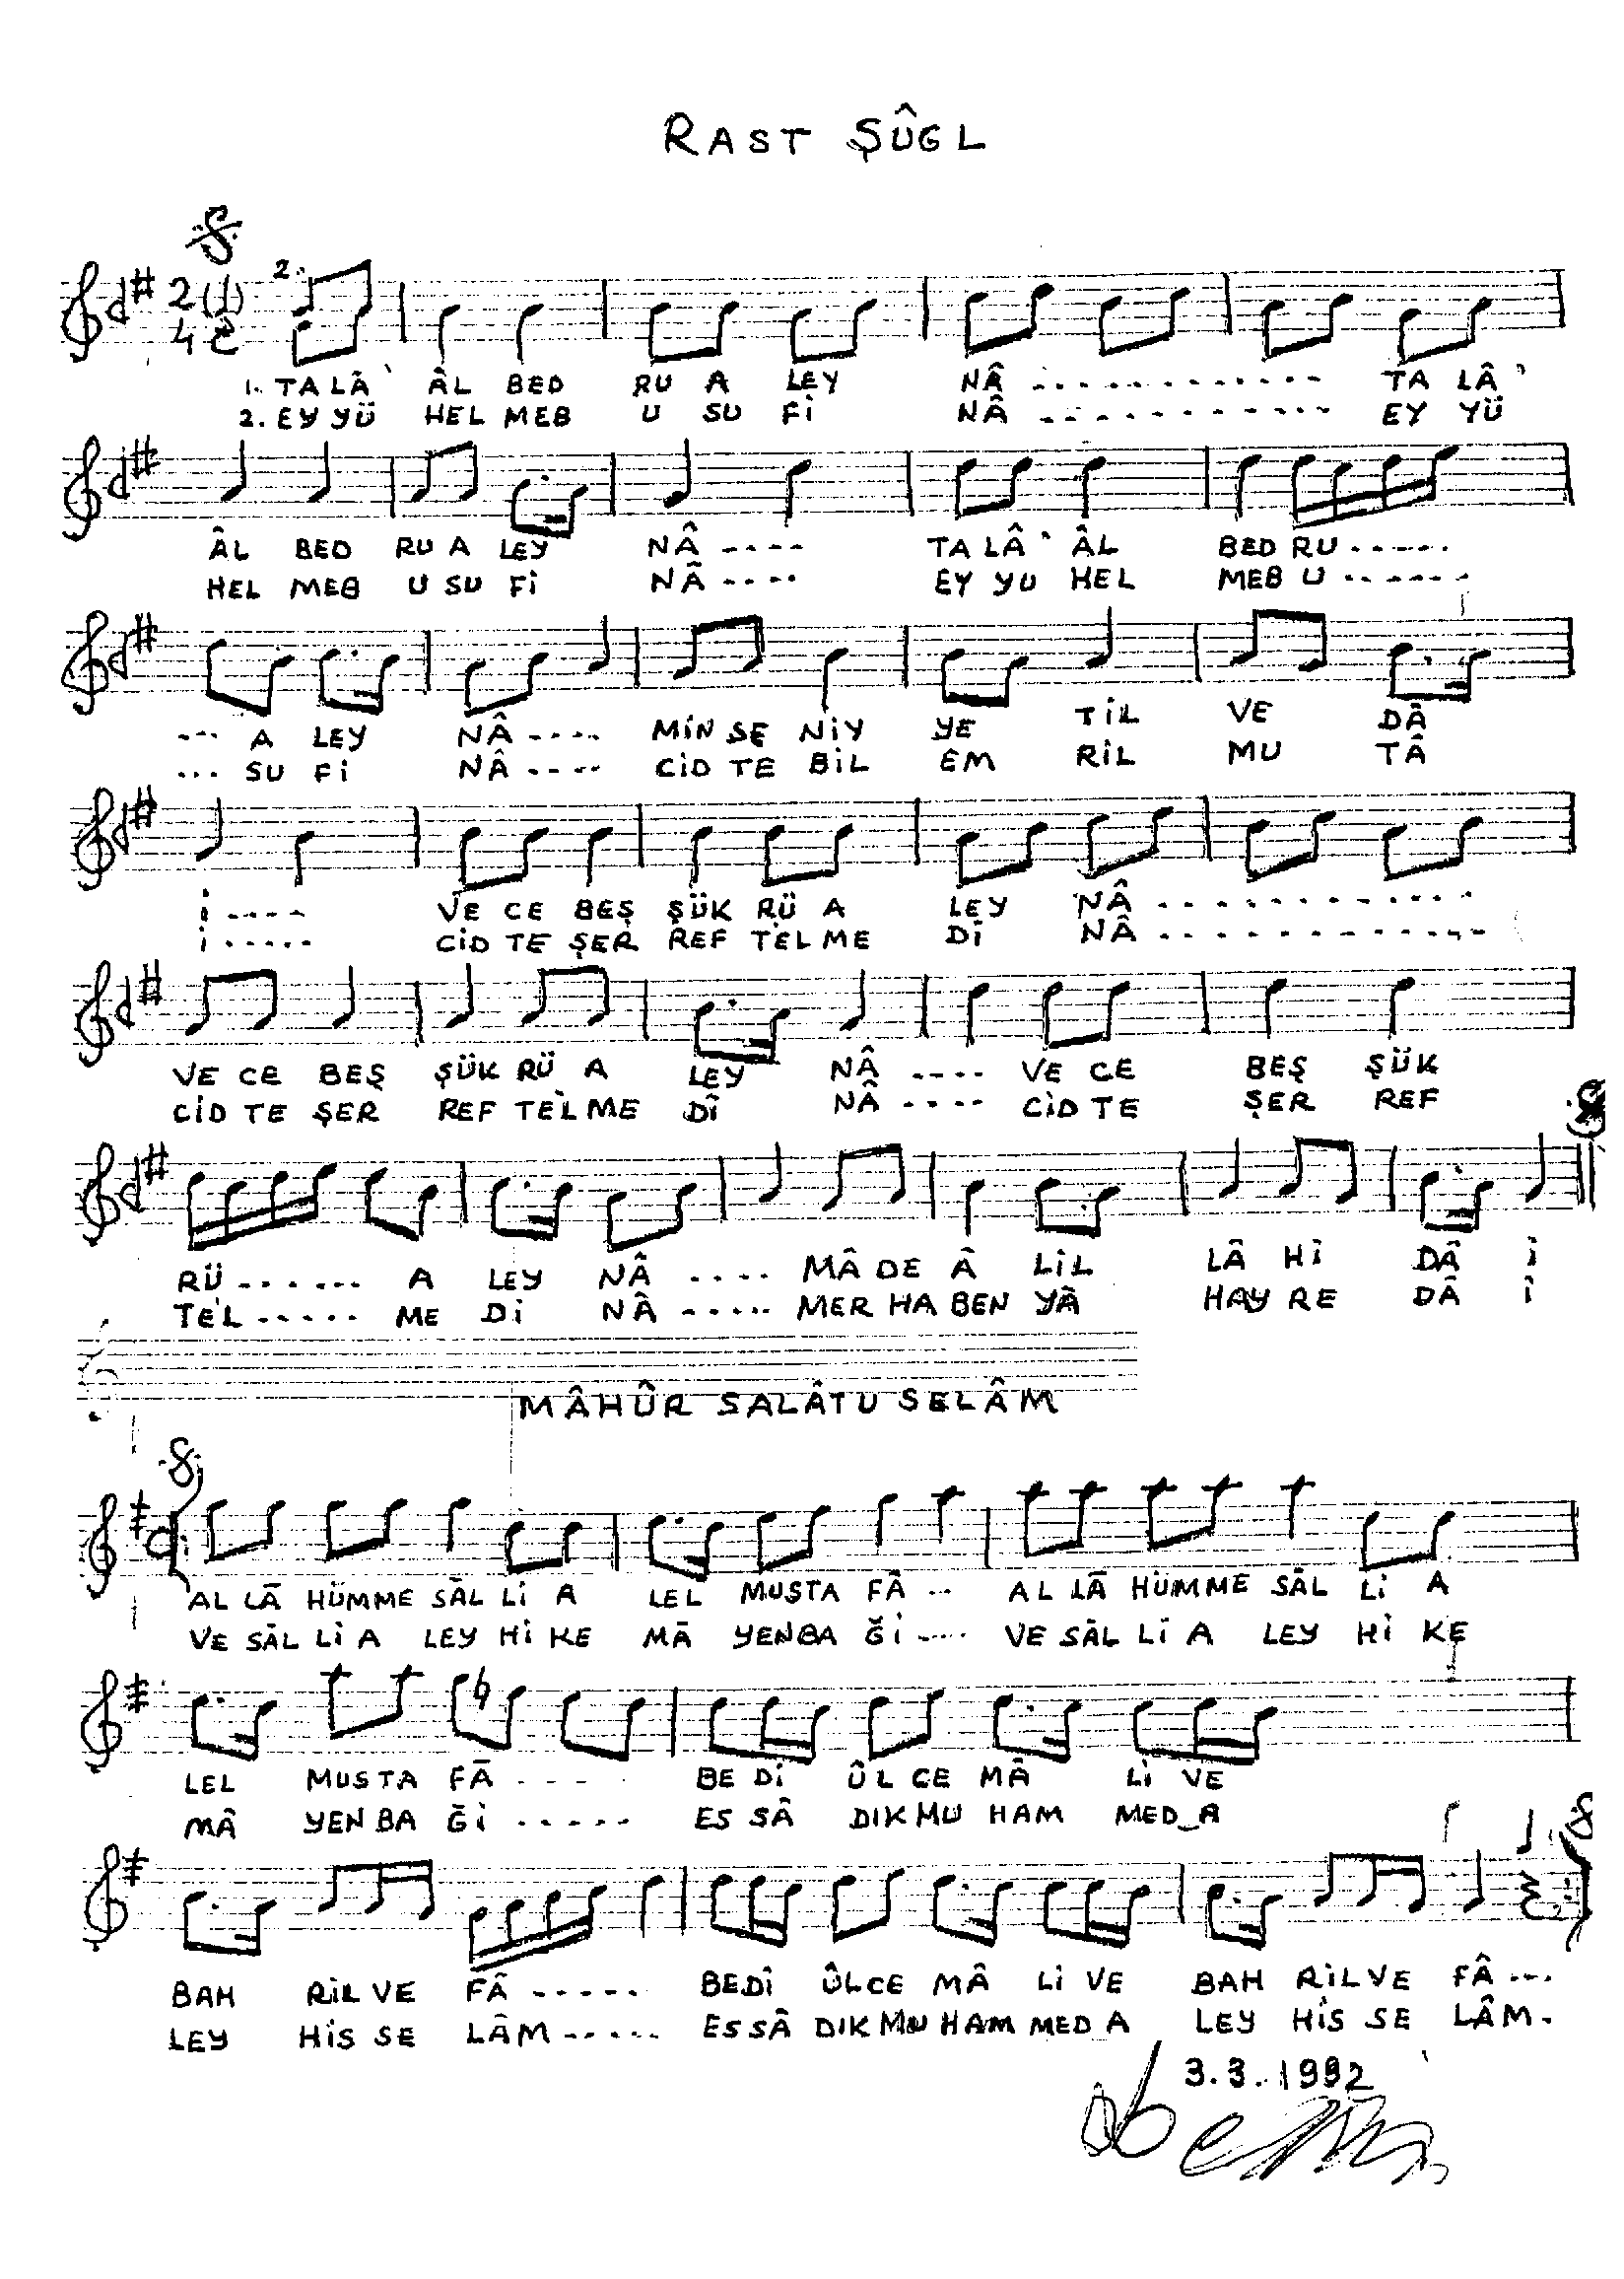 RAST ŞÛGL
2.
2 4
1. TA LÂ' ÂL BED RU A LEY NÂ ............. TA LÂ'
2. EY YÜ HEL MEB U SU Fİ NÂ ............. EY YÜ
ÂL BED RU A LEY NÂ ..... TA LÂ' ÂL BED RU ......
HEL MEB U SU Fİ NÂ .... EY YU HEL MEB U ......
... A LEY NÂ .... MİN SE NİY YE TİL VE DÂ
... SU Fİ NÂ .... CİD TE BİL EM RİL MU TÂ
İ .... VE CE BEŞ ŞÜK RÜ A LEY NÂ ............
İ ..... CİD TE ŞER REF TEL ME Dİ NÂ ............
VE CE BEŞ ŞÜK RÜ A LEY NÂ .... VE CE BEŞ ŞÜK
CİD TE ŞER REF TE'L ME DÎ NÂ .... CİD TE ŞER REF
RÜ ...... A LEY NÂ .... MÂ DE Â LİL LÂ Hİ DÂ İ
TE'L ..... ME Dİ NÂ ..... MER HA BEN YÂ HAY RE DÂ Î
MÂHÛR SALÂTU SELÂM
AL LÃ HÜMME SÃL Lİ A LEL MUSTA FÂ ... AL LÃ HÜMME SÃL Lİ A
VE SÃL Lİ A LEY Hİ KE MÃ YENBA Ğİ .... VE SÃL Lİ A LEY Hİ KE
LEL MUSTA FÃ .... BE Dİ ÛL CE MÂ Lİ VE
MÂ YEN BA Ğİ ..... ES SÂ DIK MU HAM MED_A
BAH RİL VE FÂ ...... BEDÎ ÛLCE MÂ Lİ VE BAH RİL VE FÂ ...
LEY HİS SE LÂM ..... ES SÂ DIK MU HAM MED A LEY HİS SE LÂM.
3.3.1992